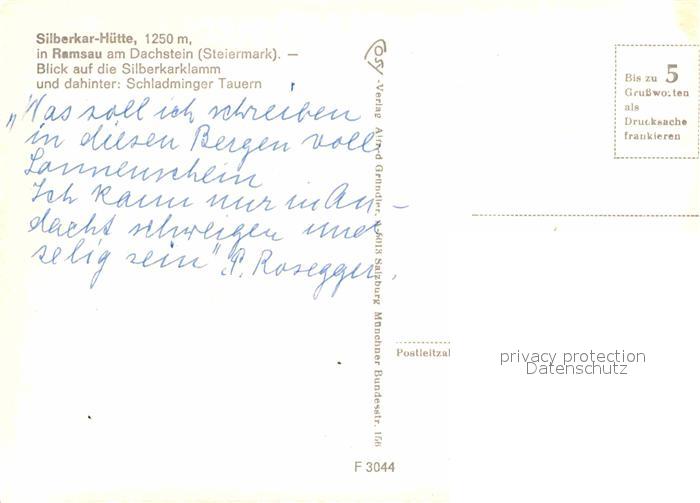 Silberkar-Hütte, 1250 m,
in Ramsau am Dachstein (Steiermark). —
Blick auf die Silberkarklamm
und dahinter: Schladminger Tauern
„Was soll ich schreiben
in diesen Bergen voll
Sonnenschein
Ich kann nur in An-
dacht schweigen und
selig sein" P. Rosegger.
Verlag Alfred Gründler, A-5013 Salzburg Münchner Bundesstr. 156
F 3044
Bis zu 5
Grußworten
als
Drucksache
frankieren
Postleitzal
privacy protection
Datenschutz